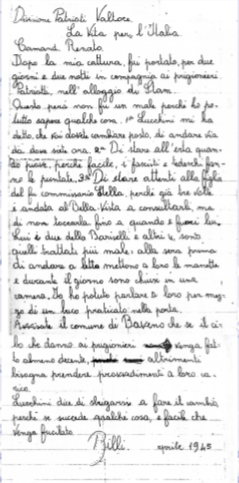 Divisione Patrioti Valtoce.
La Vita per l'Italia
Comand. Renato.
Dopo la mia cattura, fui portato, per due
giorni e due notti in compagnia ai prigionieri
Patrioti, nell'alloggio di Stam.
Questo però non fu un male perchè ho po-
tuto sapere qualche cosa. 1º Lucchini mi ha
detto, che voi dovete cambiare posto, di andare via
da dove siete ora. 2º Di stare all'erta quan-
to piove, perchè facile, i fascisti e tedeschi fan-
no le puntate. 3º Di stare attenti alla figlia
del fu commissario Stella, perchè già tre volte
è andata al Bella Vista a consultarli, ma
di non toccarla, fino a quando è fuori lui.
Lui e due della Barivelli e altri, sono
quelli trattati più male, alla sera prima
di andare a letto mettono a loro le manette
e durante il giorno sono chiusi in una
camera. Io ho potuto parlare a loro per mez-
zo di un buco praticato nella porta.
il comune di Baveno che se il ci-
bo che danno ai prigionieri venga fat-
to almeno decente, altrimenti
bisogna prendere provvedimenti a loro ca-
rico.
Lucchini dice di sbrigarvi a fare il cambio
perchè se succede qualche cosa, è facile che
venga fucilato.
Billi. aprile 1945